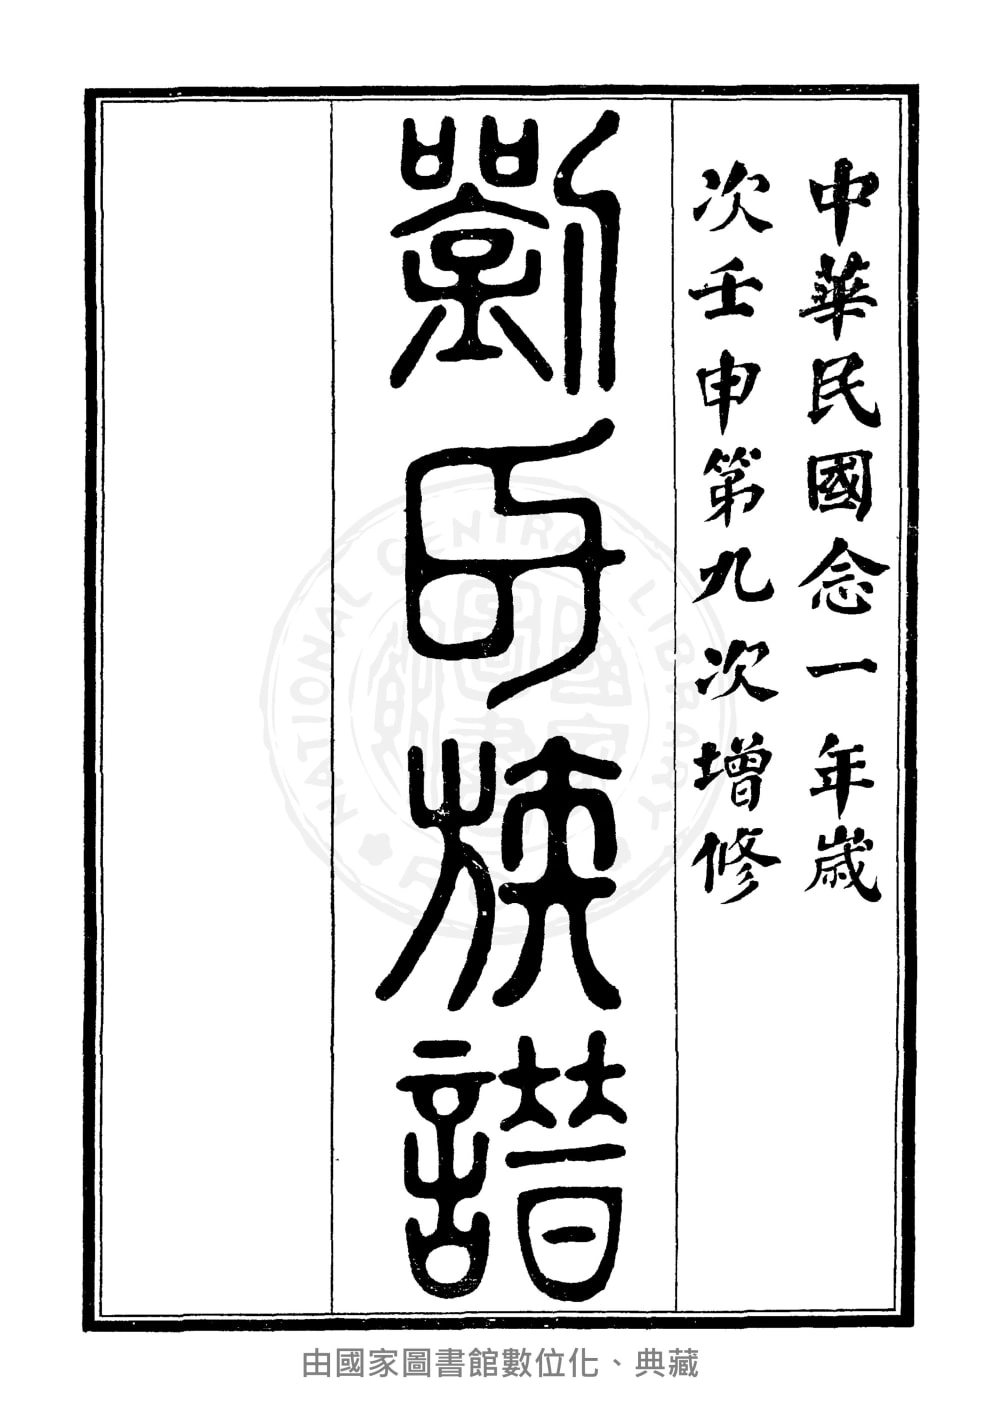 中華民國念一年歲
次壬申第九次增修
劉氏族譜
由國家圖書館數位化、典藏
NATIONAL CENTRAL LIBRARY